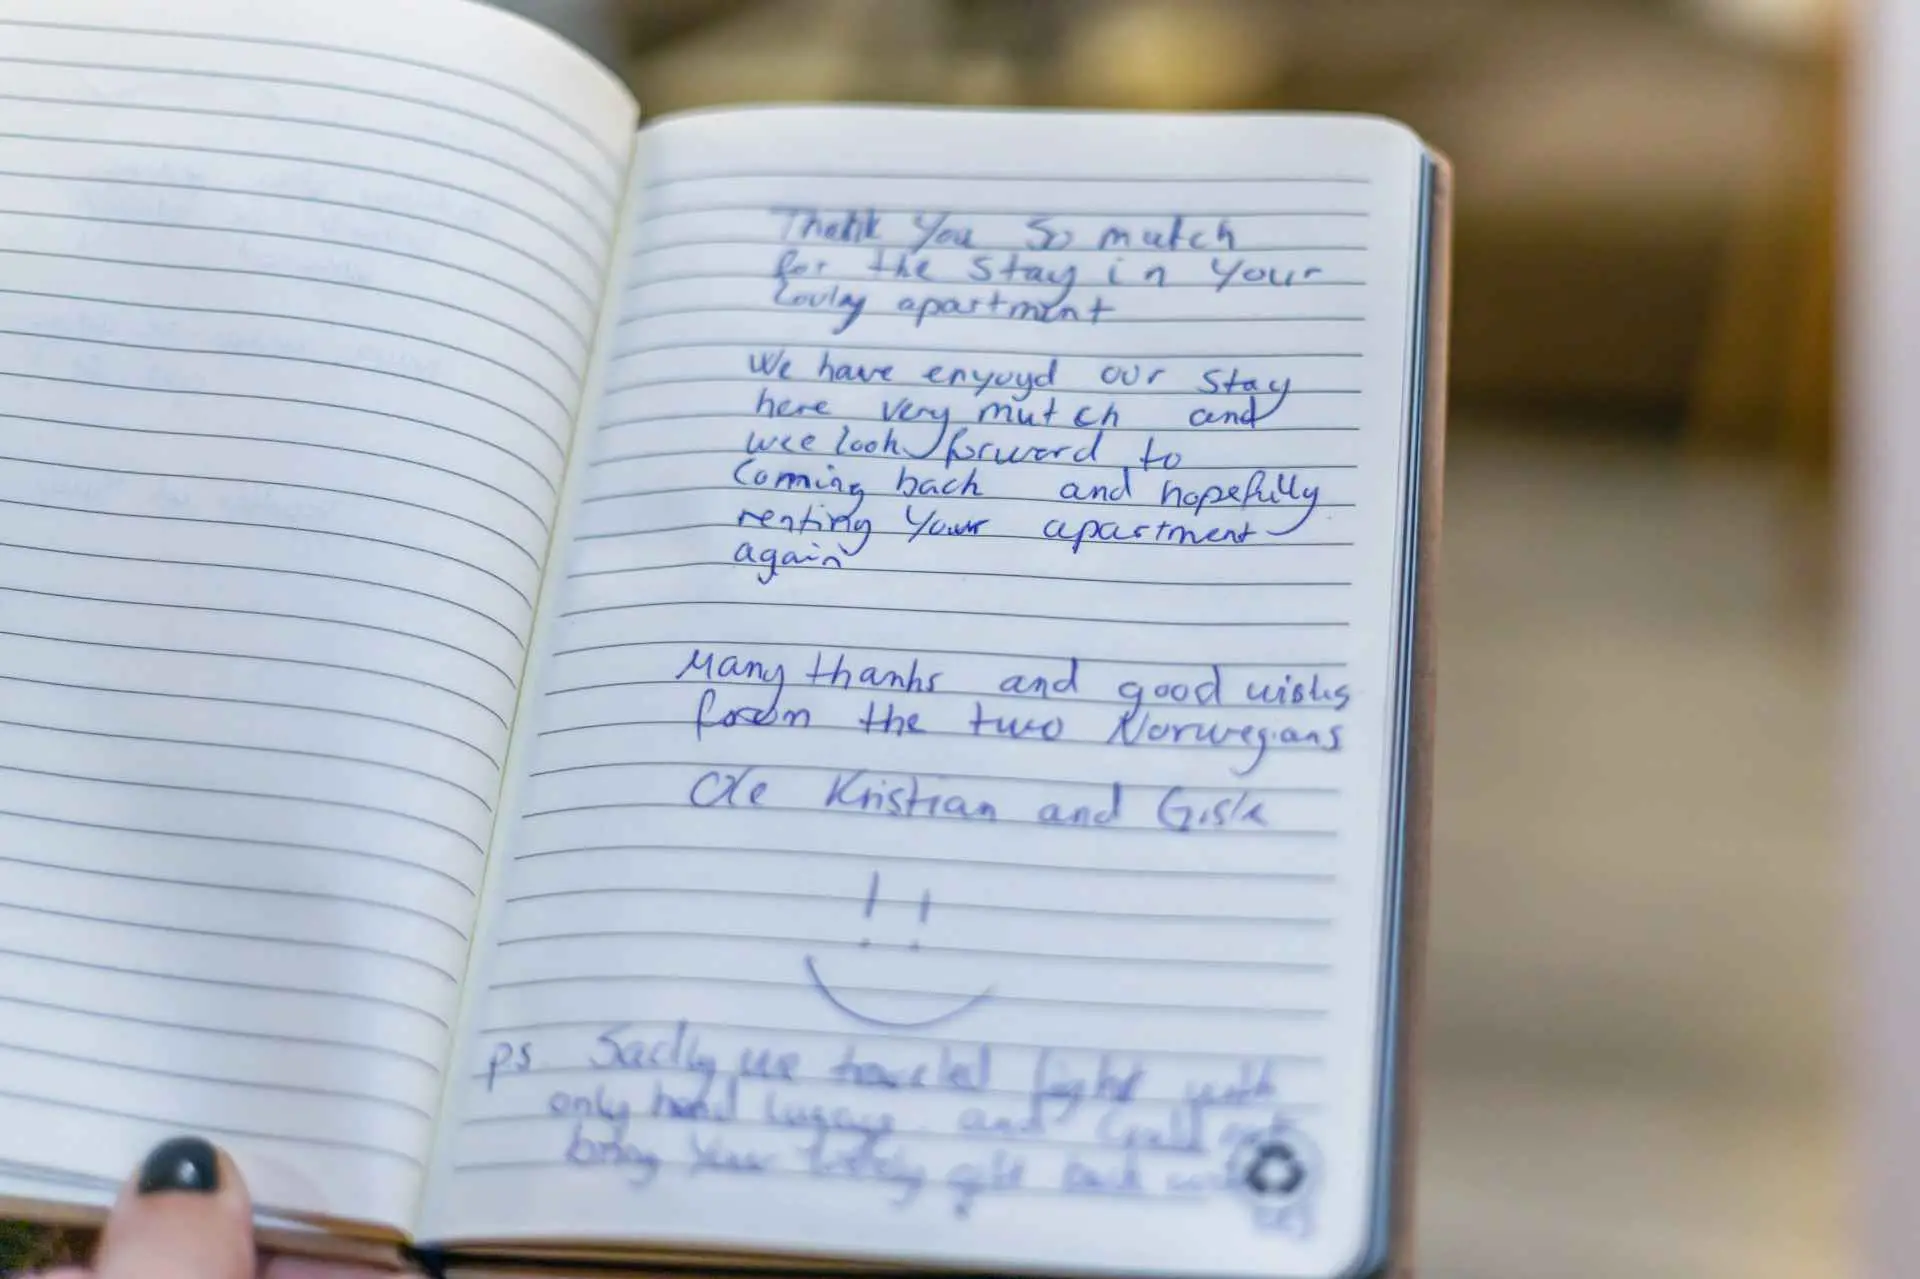 Thank you so mutch
for the stay in your
lovley apartment
We have enyoyd our stay
here very mutch and
wee look forword to
coming back and hopefully
renting your apartment
again
Many thanks and good wishes
from the two Norwegians
Ole Kristian and Gisle
ps Sadly we traveled light with
only hand lugage and could not
bring your lovely gift back